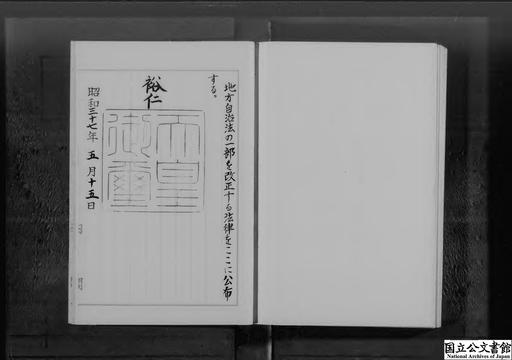 地方自治法の一部を改正する法律をここに公布
する。
裕仁
天皇
御璽
昭和三十七年 五月十五日
国立公文書館
National Archives of Japan